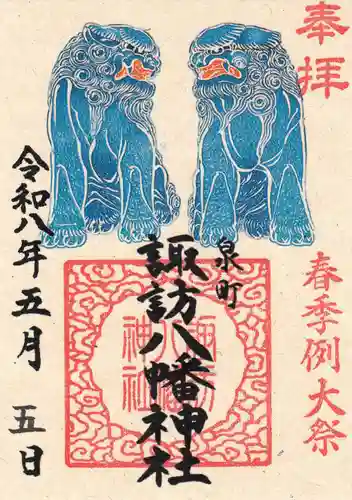 奉拝
春季例大祭
泉町
諏訪八幡神社
諏訪八幡神社
令和八年五月五日